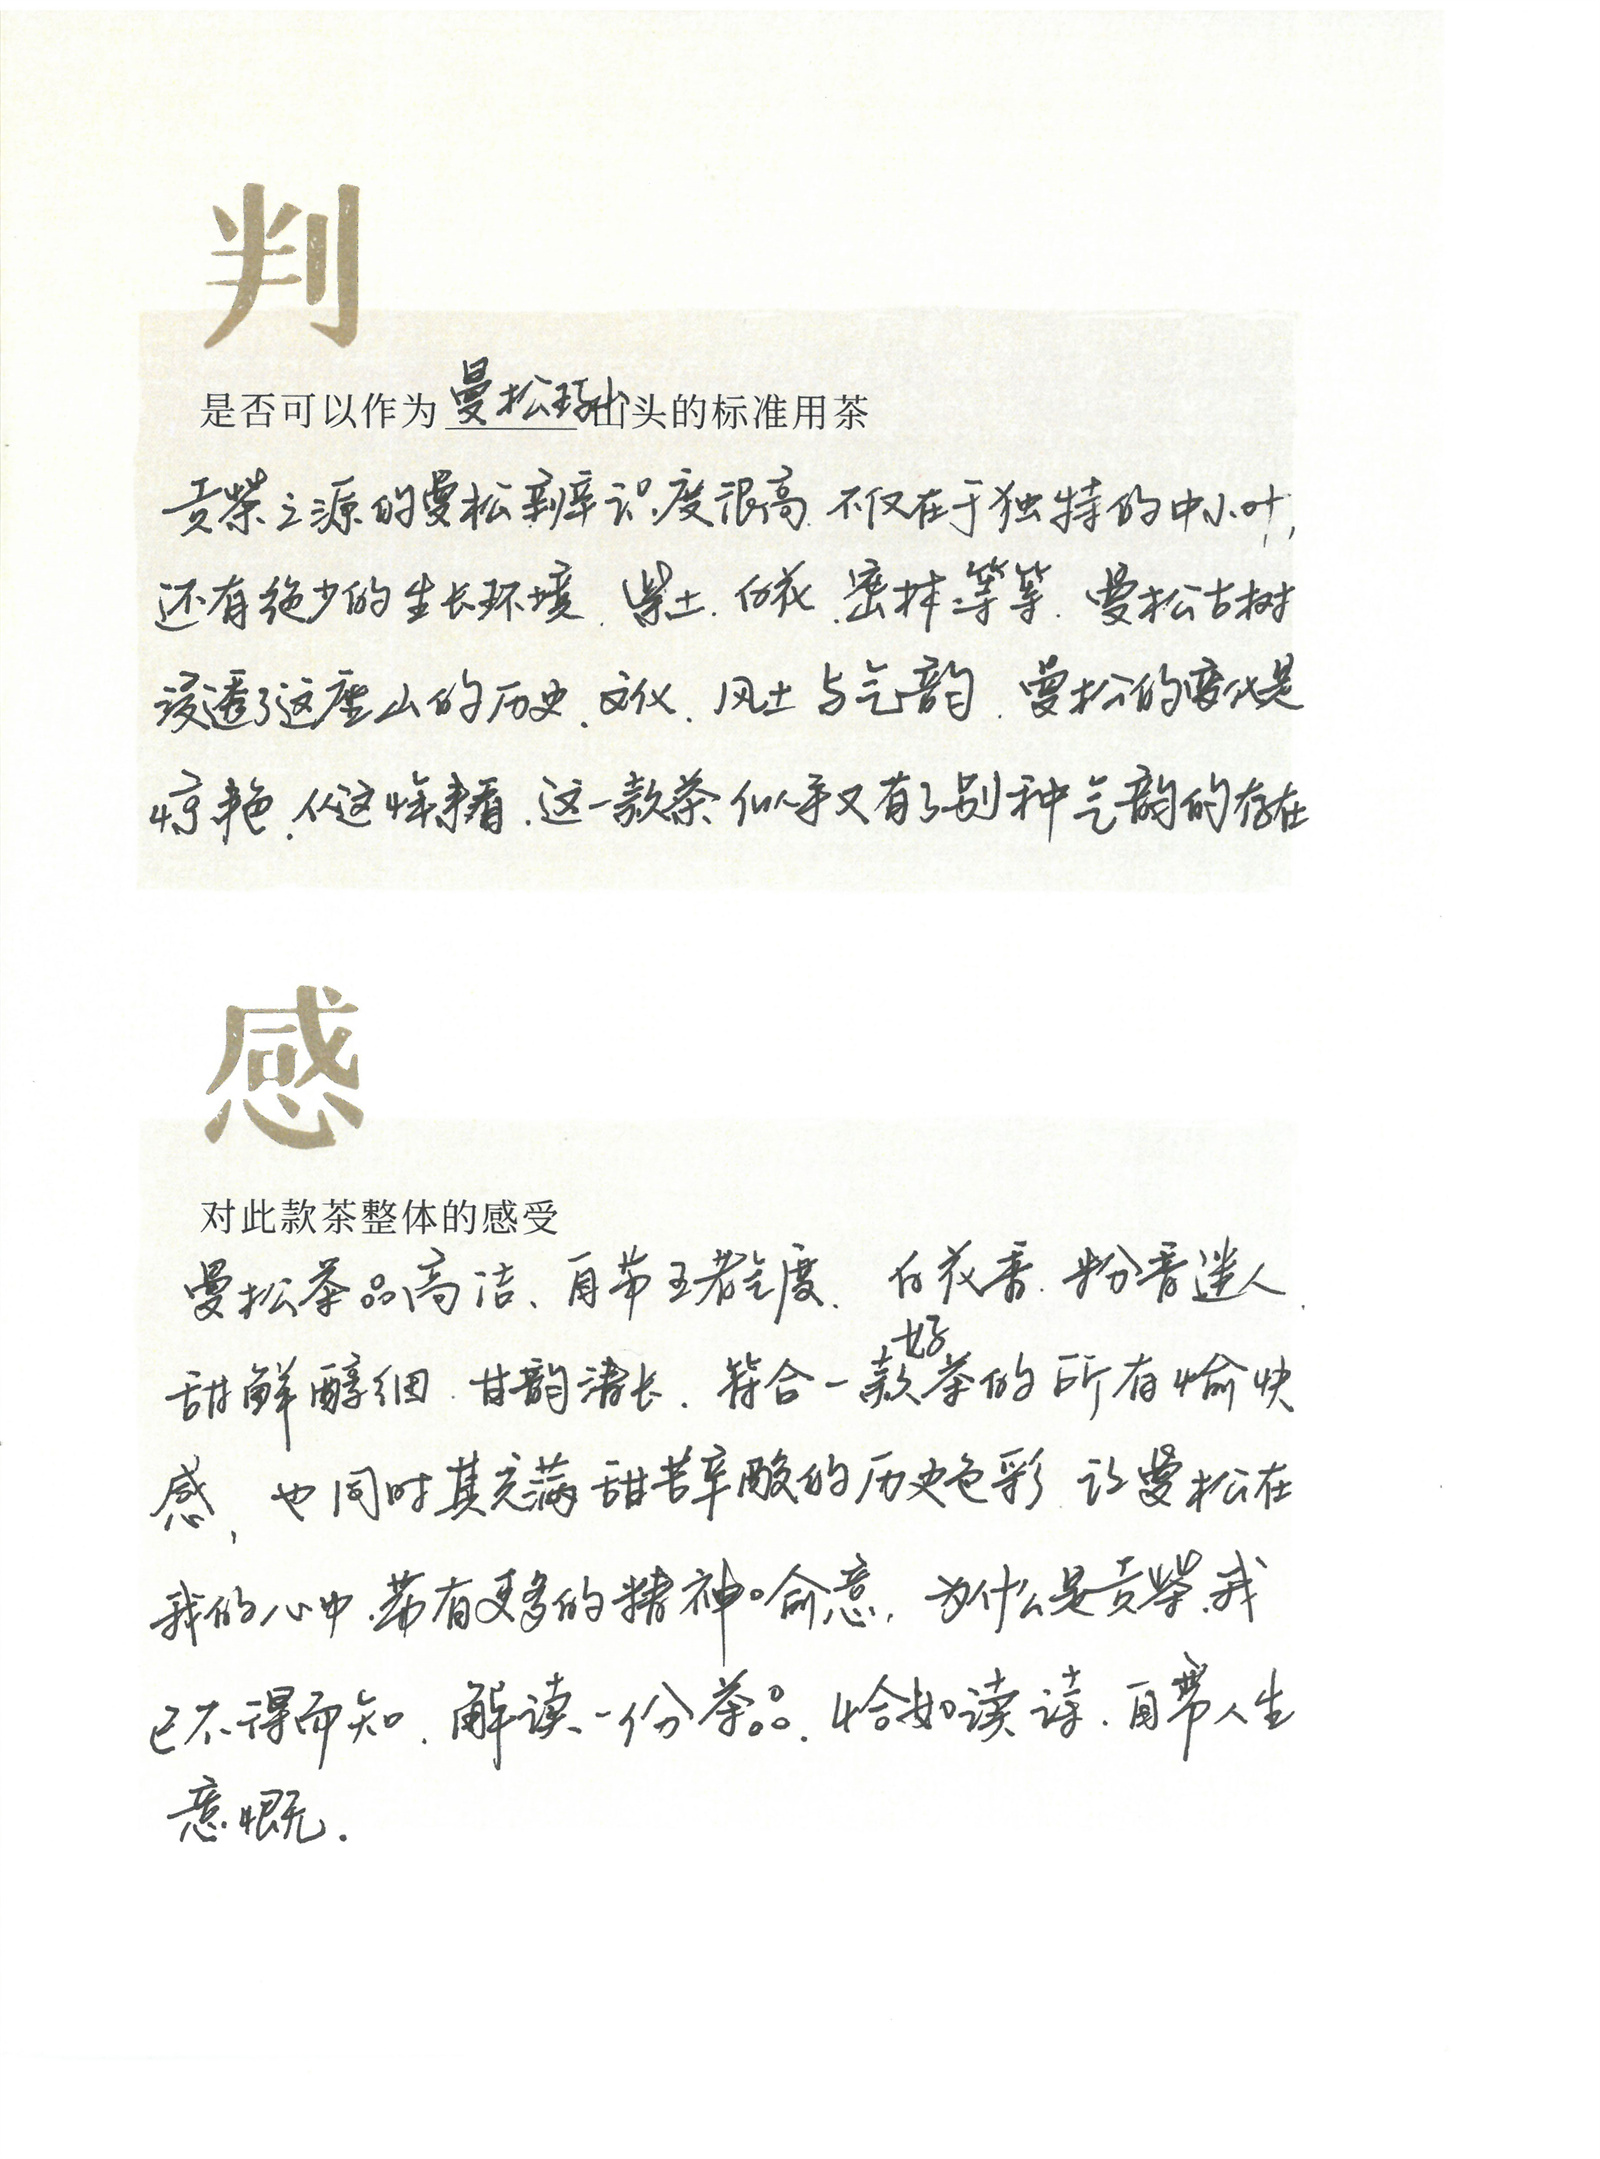 判
是否可以作为 曼松 山头的标准用茶
贡茶之源的曼松辨识度很高.不仅在于独特的中小叶,
还有绝少的生长环境.紫土.百花.密林等等.曼松古树
浸透了这座山的历史.文化.风土与气韵.曼松的变化是
惊艳.从这样来看.这一款茶似乎又有了别种气韵的存在
感
对此款茶整体的感受
曼松茶品高洁、自带王者气度.百花香.粉香迷人.
甜鲜醇细.甘韵清长.符合一款好茶的所有愉快
感,也同时其充满甜苦辛酸的历史色彩.让曼松在
我的心中.带有更多的精神喻意.为什么是贡茶.我
已不得而知.解读一份茶品.恰如读诗.自带人生
意慨.